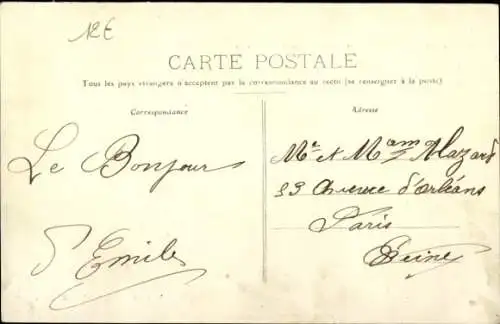 12E
CARTE POSTALE
Tous les pays étrangers n'acceptent pas la correspondance au recto (se renseigner à la poste)
Correspondance
Adresse
Le Bonjour
d'Emile
Mr et Mam Mazard
23 Avenue d'Orléans
Paris
Seine